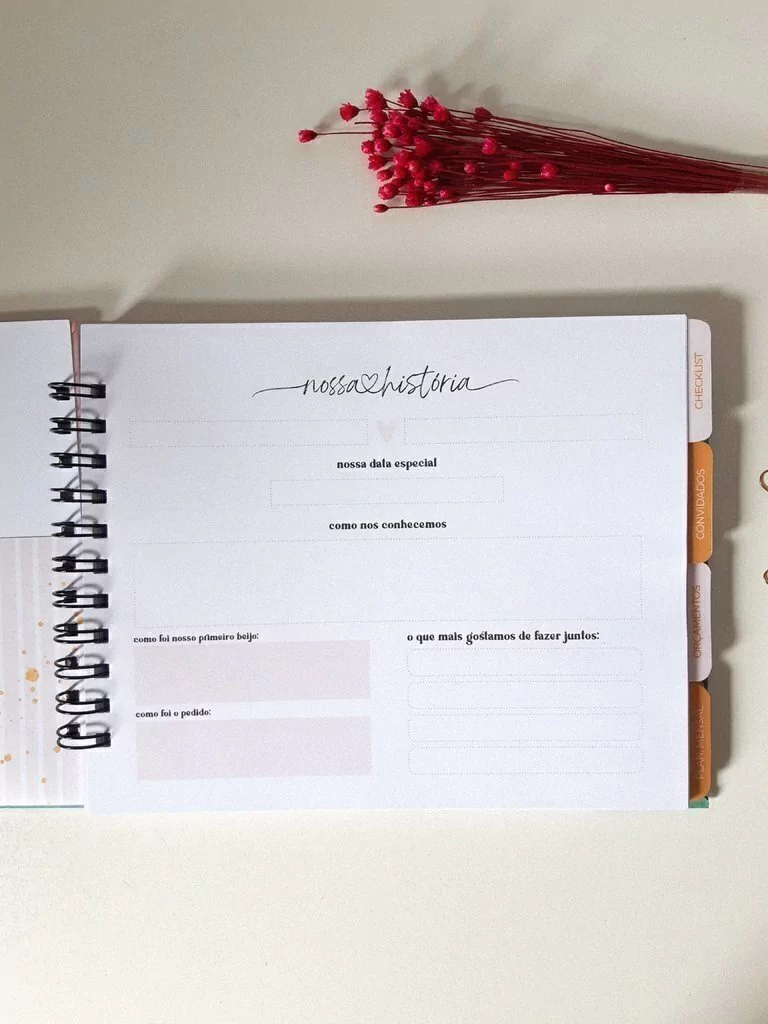 nossa história
nossa data especial
como nos conhecemos
como foi nosso primeiro beijo:
o que mais gostamos de fazer juntos:
como foi o pedido:
CHECKLIST
CONVIDADOS
ORÇAMENTOS
PLAN. MENSAL